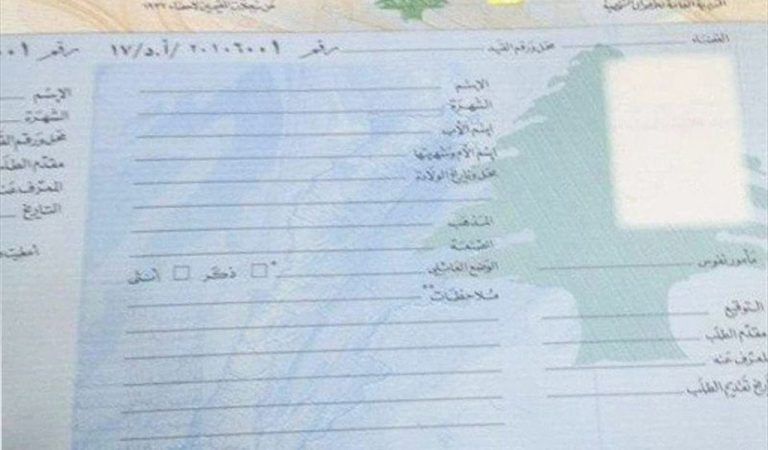 المديرية العامة للأحوال الشخصية
القضاء محل ورقم القيد
رقم ٢٠١٠٦٠٠١ /أ.د/ ١٧
رقم
الإسم
الشهرة
إسم الأب
إسم الأم وشهرتها
محل وتاريخ الولادة
المذهب
الصنعة
الوضع العائلي * ذكر أنثى
ملاحظات**
مأمور نفوس
التوقيع
مقدم الطلب
المعرف عنه
تاريخ تقديم الطلب
الإسم
الشهرة
محل ورقم
مقدم
المعرف
التاريخ